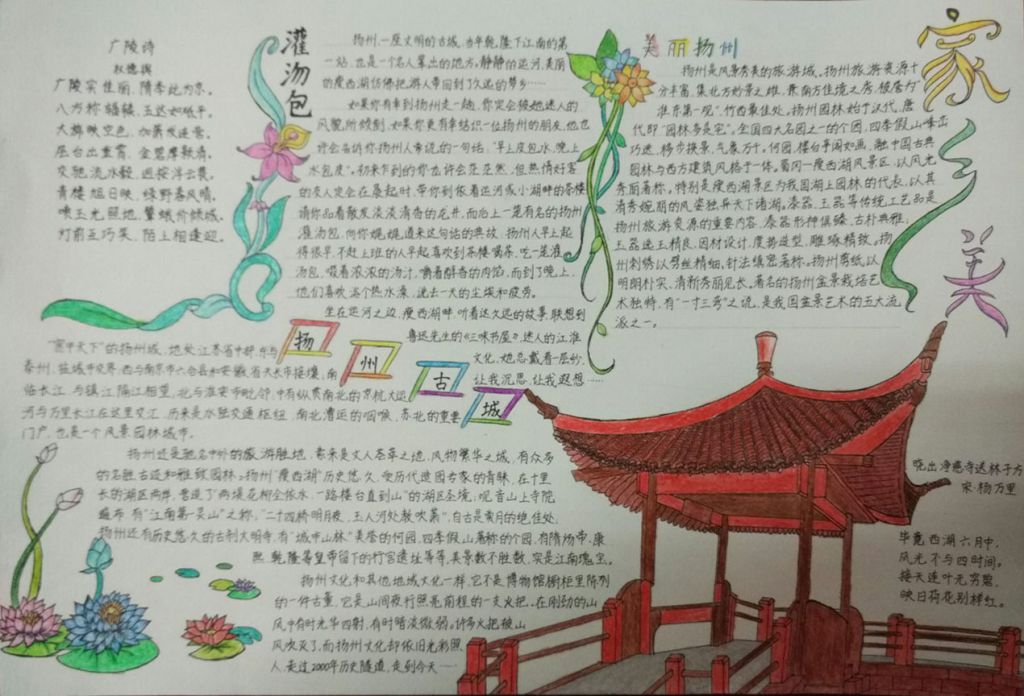 广陵诗
权德舆
广陵实佳丽，隋季此为京。
八方称辐辏，五达如砥平。
大旆映空色，笳箫发连营。
层台出重霄，金碧摩颢清。
交驰流水毂，迥接浮云甍。
青楼旭日映，绿野春风晴。
喷玉光照地，颦蛾价倾城。
灯前互巧笑，陌上相逢迎。
灌汤包
扬州，一座文明的古城，当年乾隆下江南的第
一站，也是一个名人辈出的地方，静静的运河，美丽
的瘦西湖仿佛把游人带回到了久远的梦乡……
如果你有幸到扬州走一趟，你定会被她迷人的
风貌所倾倒，如果你更有幸结识一位扬州的朋友，他也
许会告诉你扬州人常说的一句话，“早上皮包水，晚上
水包皮”，初来乍到的你也许会茫茫然，但热情好客
的友人定会在晨起时，带你到依着运河或小湖畔的茶楼
请你品着散发淡淡清香的花卉，而后上一笼有名的扬州
灌汤包，向你娓娓道来这句话的典故，扬州人早上起
得很早，不赶上班的人早起喜欢到茶楼喝茶，吃一笼灌
汤包，吸着浓浓的汤汁，嚼着鲜香的肉馅，而到了晚上，
他们喜欢泡个热水澡，洗去一天的尘埃和疲劳。
坐在运河之边，瘦西湖畔，听着这久远的故事，联想到
鲁迅先生的《三味书屋》，迷人的江淮
文化，她总戴着一层纱，
让我沉思，让我遐想……
美丽扬州
扬州是风景秀美的旅游城。扬州旅游资源十
分丰富，集北方妙景之雄，兼南方佳境之秀，被誉为“
淮东第一观”，竹西最佳处。扬州园林始于汉代，唐
代即“园林多是宅”。全国四大名园之一的个园，四季假山峰峦
巧迷，移步换景，气象万千。何园，楼台亭阁如画，融中国古典
园林与西方建筑风格于一体。蜀冈—瘦西湖风景区，以风光
秀丽著称，特别是瘦西湖景区为我国湖上园林的代表，以其
清秀婉丽的风姿独异天下诸湖。漆器、玉器等传统工艺品是
扬州旅游资源的重要内容，漆器形神俱臻，古朴典雅，
玉器选玉精良，因材设计，度势造型，雕琢精致。扬
州刺绣以劈丝精细，针法缜密著称。扬州剪纸，以
明朗朴实，清新秀丽见长。著名的扬州盆景栽培艺
术独特，有“一寸三弯”之说，是我国盆景艺术的五大流
派之一。
家
美
扬州古城
“富甲天下”的扬州城，地处江苏省中部，东与
泰州，盐城市交界，西与南京市六合县和安徽省天长市接壤，南
临长江，与镇江隔江相望，北与淮安市毗邻，中有纵贯南北的京杭大运
河与万里长江在这里交汇，历来是水陆交通枢纽，南北漕运的咽喉，苏北的重要
门户，也是一个风景园林城市。
扬州还是驰名中外的旅游胜地，素来是文人荟萃之地，风物繁华之城，有众多
的名胜古迹和雅致园林。扬州“瘦西湖”历史悠久，受历代造园专家的青睐，在十里
长的湖区两岸，营造了“两堤花柳全依水，一路楼台直到山”的湖区胜境，观音山上寺院
遍布有“江南第一灵山”之称，“二十四桥明月夜，玉人何处教吹箫”，自古是赏月的绝佳处。
扬州还有历史悠久的古刹大明寺，有“城中山林”美誉的何园，四季假山著称的个园，有隋炀帝、康
熙、乾隆等皇帝留下的行宫遗址等等，美景数不胜数，实是江南瑰宝。
扬州文化和其他地域文化一样，它不是博物馆橱柜里陈列
的一件古董，它是山间夜行照亮前程的一支火把。在刚劲的山
风中有时光华四射，有时暗淡微弱。许多火把被山
风吹灭了，而扬州文化却依旧光彩照
人，走过2000年历史隧道，走到今天……
晓出净慈寺送林子方
宋·杨万里
毕竟西湖六月中，
风光不与四时间。
接天连叶无穷碧，
映日荷花别样红。